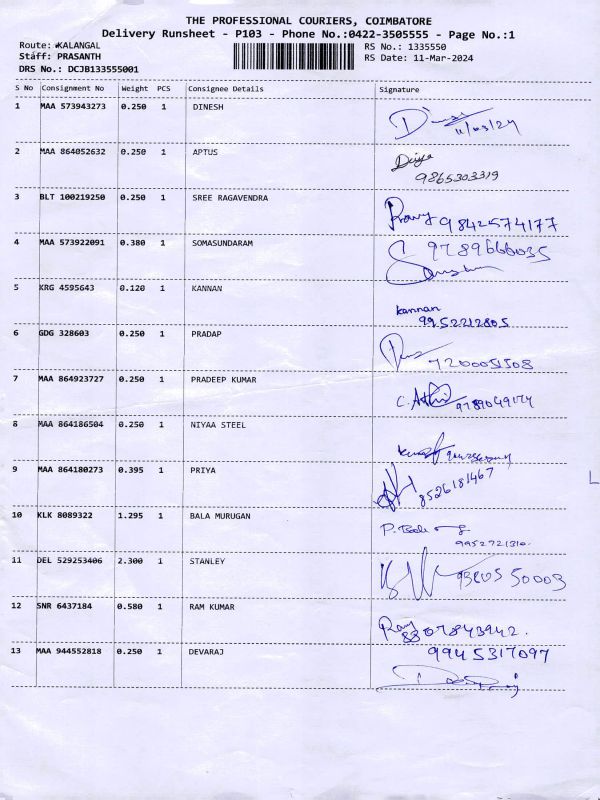 THE PROFESSIONAL COURIERS, COIMBATORE
Delivery Runsheet - P103 - Phone No.:0422-3505555 - Page No.:1
Route: KALANGAL RS No.: 1335550
Staff: PRASANTH RS Date: 11-Mar-2024
DRS No.: DCJB133555001
S No Consignment No Weight PCS Consignee Details Signature
1 MAA 573943273 0.250 1 DINESH
11/03/24
2 MAA 864052632 0.250 1 APTUS Divya
9865303319
3 BLT 100219250 0.250 1 SREE RAGAVENDRA
9842574177
4 MAA 573922091 0.380 1 SOMASUNDARAM 9789666035
5 KRG 4595643 0.120 1 KANNAN kannan
9952212805
6 GDG 328603 0.250 1 PRADAP
7200051508
7 MAA 864923727 0.250 1 PRADEEP KUMAR
9789049174
8 MAA 864186504 0.250 1 NIYAA STEEL
9 MAA 864180273 0.395 1 PRIYA
8526181467
10 KLK 8089322 1.295 1 BALA MURUGAN
11 DEL 529253406 2.300 1 STANLEY
12 SNR 6437184 0.580 1 RAM KUMAR
8807843942.
13 MAA 944552818 0.250 1 DEVARAJ 9945317097